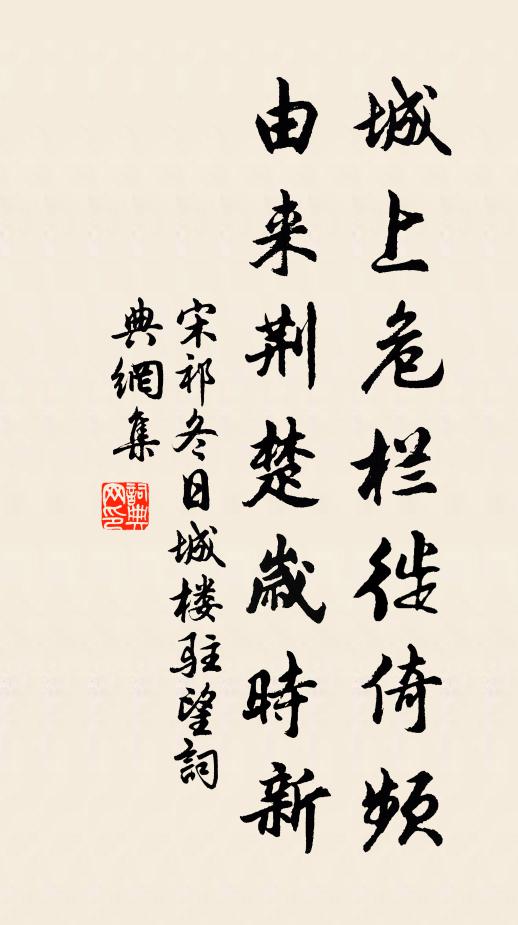 城上危栏徙倚频
由来荆楚歳時新
宋祁冬日城楼驻望詞
典網集
詞典
网印